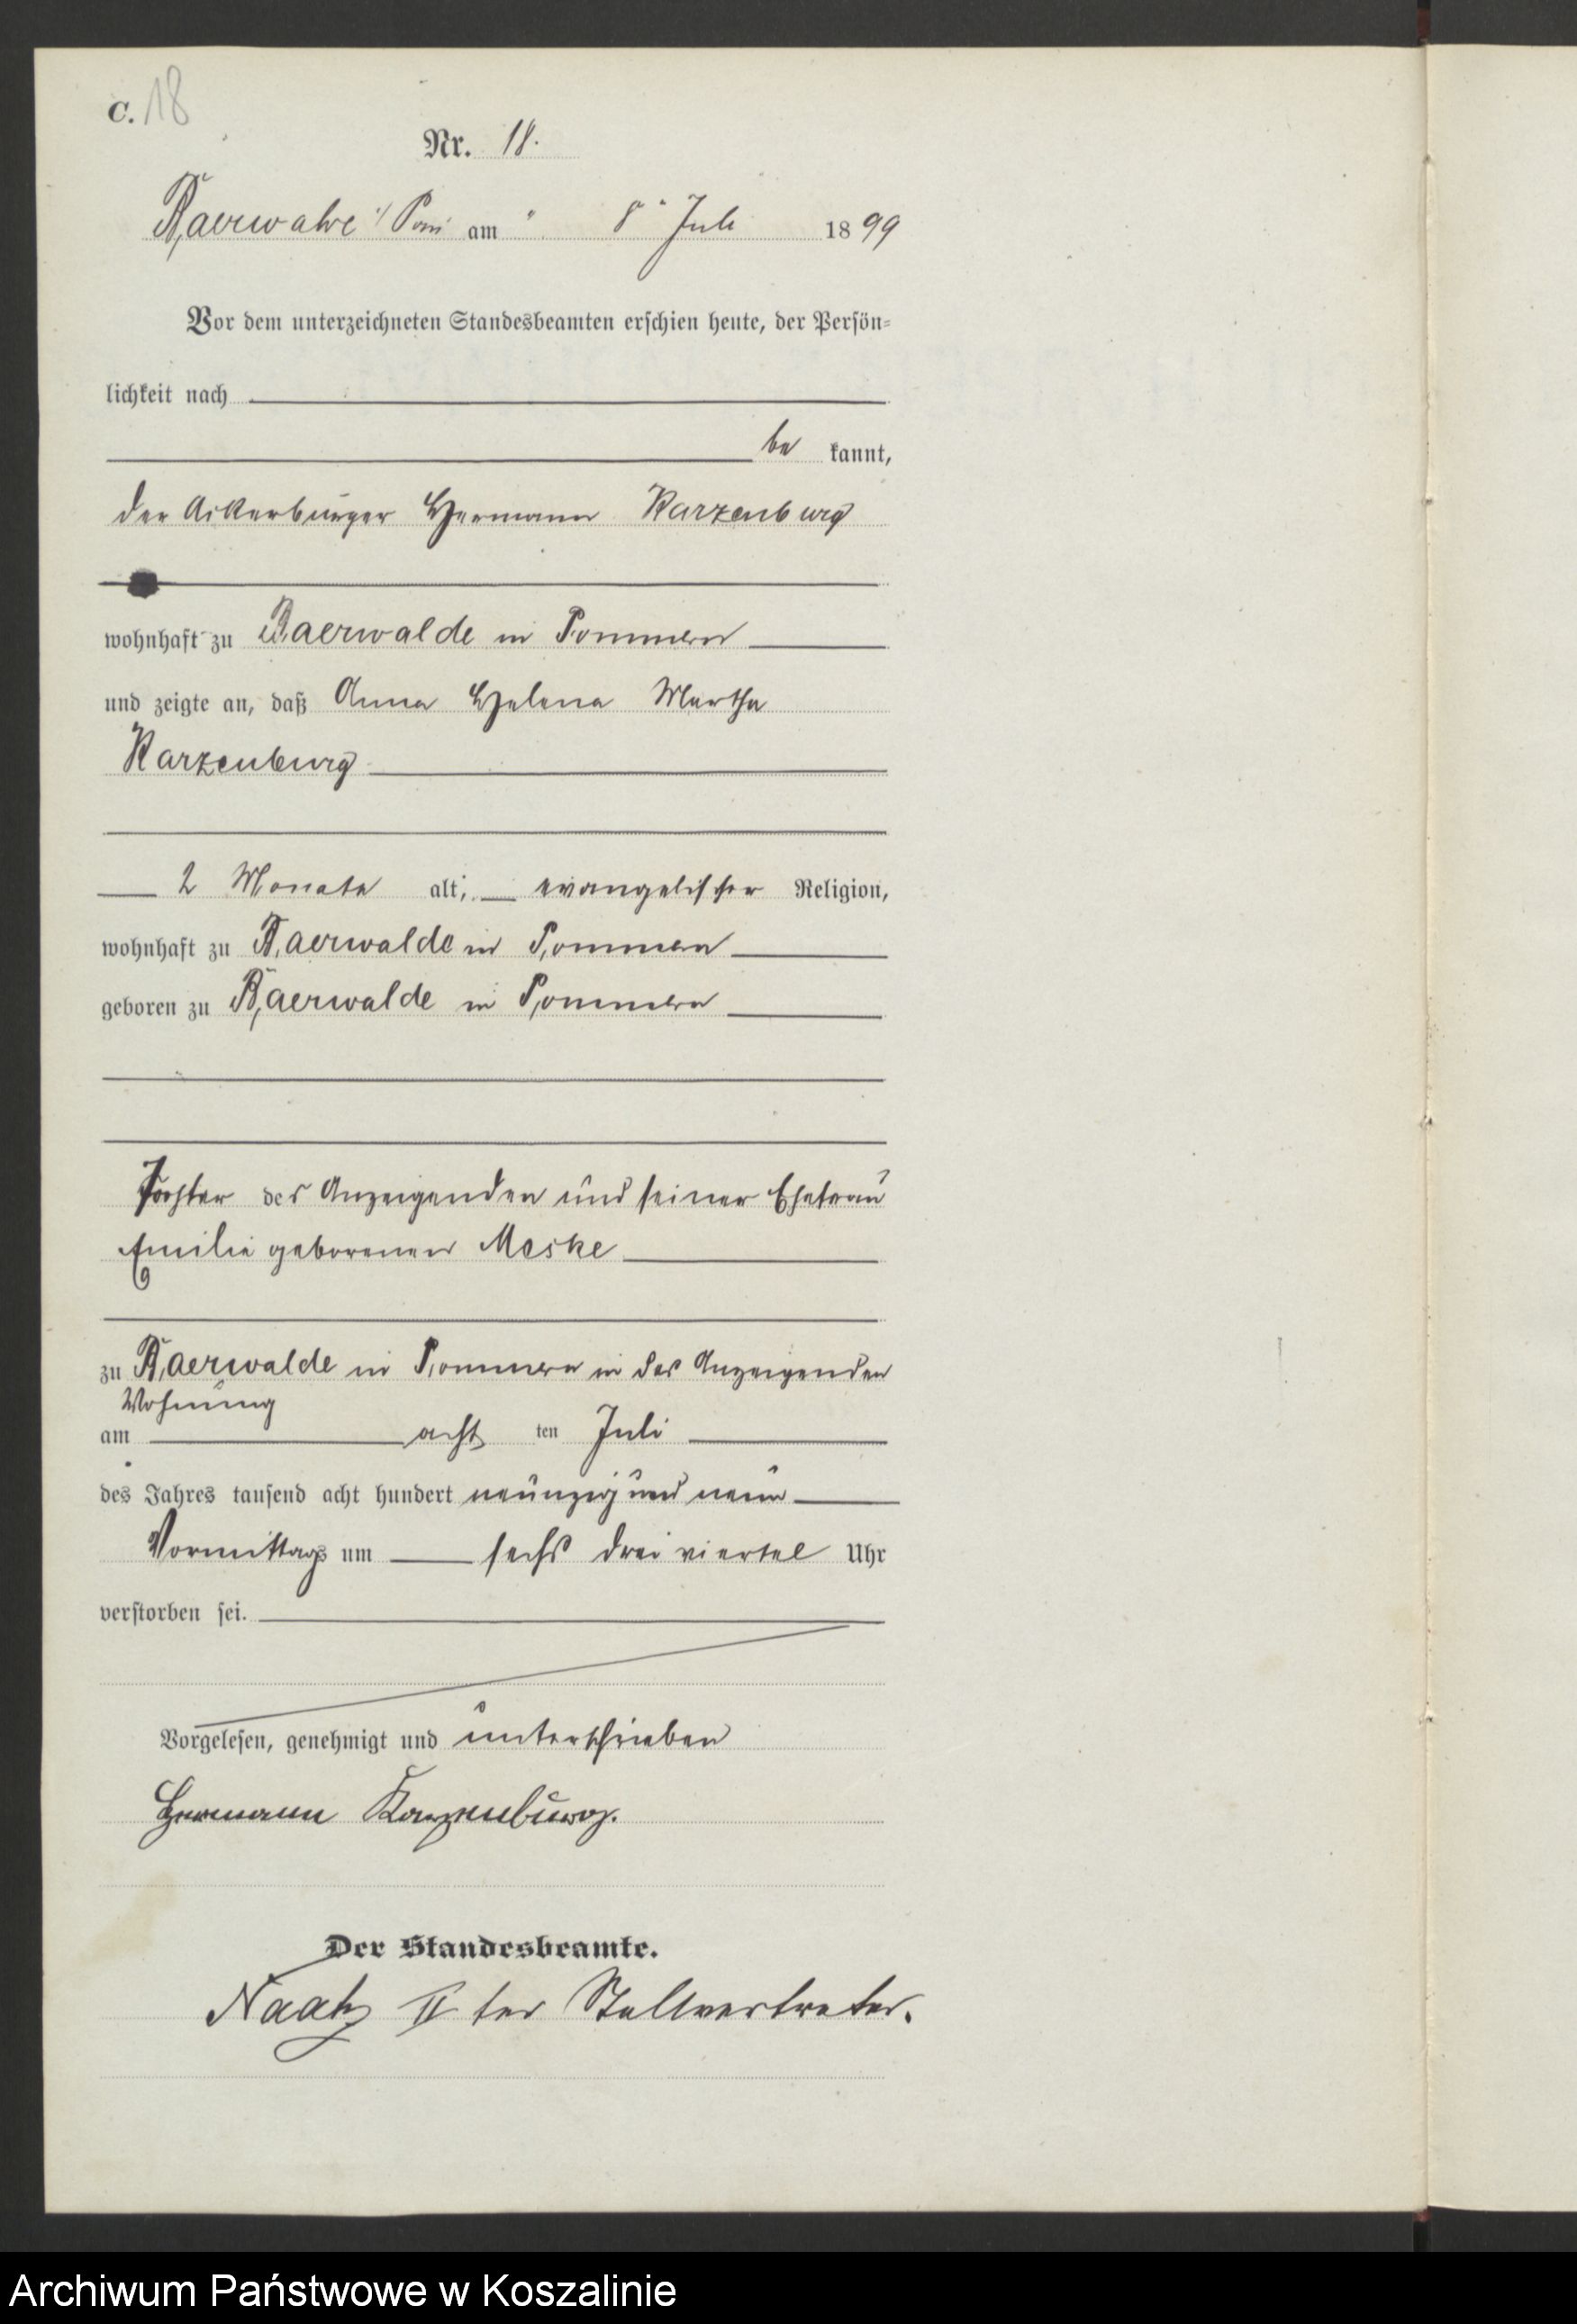 C. 18
Nr. 18.
Baerwalde i/Pom am 8 Juli 1899
Vor dem unterzeichneten Standesbeamten erschien heute, der Persön-
lichkeit nach
be kannt,
der Ackerbürger Hermann Karzenburg
wohnhaft zu Baerwalde in Pommern
und zeigte an, daß Anna Helena Martha
Karzenburg
2 Monate alt, evangelischer Religion,
wohnhaft zu Baerwalde in Pommern
geboren zu Baerwalde in Pommern
Tochter des Anzeigenden und seiner Ehefrau
Emilie geborenen Meske
zu Baerwalde in Pommern in des Anzeigenden
Wohnung
am acht ten Juli
des Jahres tausend acht hundert neunzig und neun
Vormittags um sechs drei viertel Uhr
verstorben sei.
Vorgelesen, genehmigt und unterschrieben
Hermann Karzenburg.
Der Standesbeamte.
Naatz II ter Stellvertreter.
Archiwum Państwowe w Koszalinie